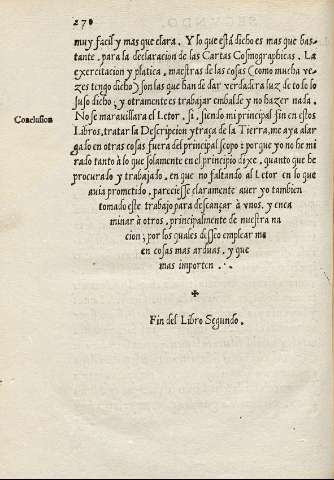 270
muy facil y mas que clara. Y lo que está dicho es mas que bas-
tante, para la declaracion de las Cartas Cosmographicas. La
exercitacion y platica, maestras de las cosas (como mucha ve-
zes tengo dicho) son las que han de dar verdadera luz de todo lo
suso dicho, y otramente es trabajar embalde y no hazer nada.
Conclusion
No se maravillara el Letor, si, siendo mi principal fin en estos
Libros, tratar la Descripcion y traça de la Tierra, me aya alar
gado en otras cosas fuera del principal scopo: porque yo no he mi
rado tanto à lo que solamente en el principio dixe, quanto que he
procurado y trabajado, en que no faltando al Letor en lo que
avia prometido, pareciesse claramente aver yo tambien
tomado este trabajo para descançar à unos, y enca
minar à otros, principalmente de nuestra na
cion; por los quales desseo emplear me
en cosas mas arduas, y que
mas importen .·.
✠
Fin del Libro Segundo.